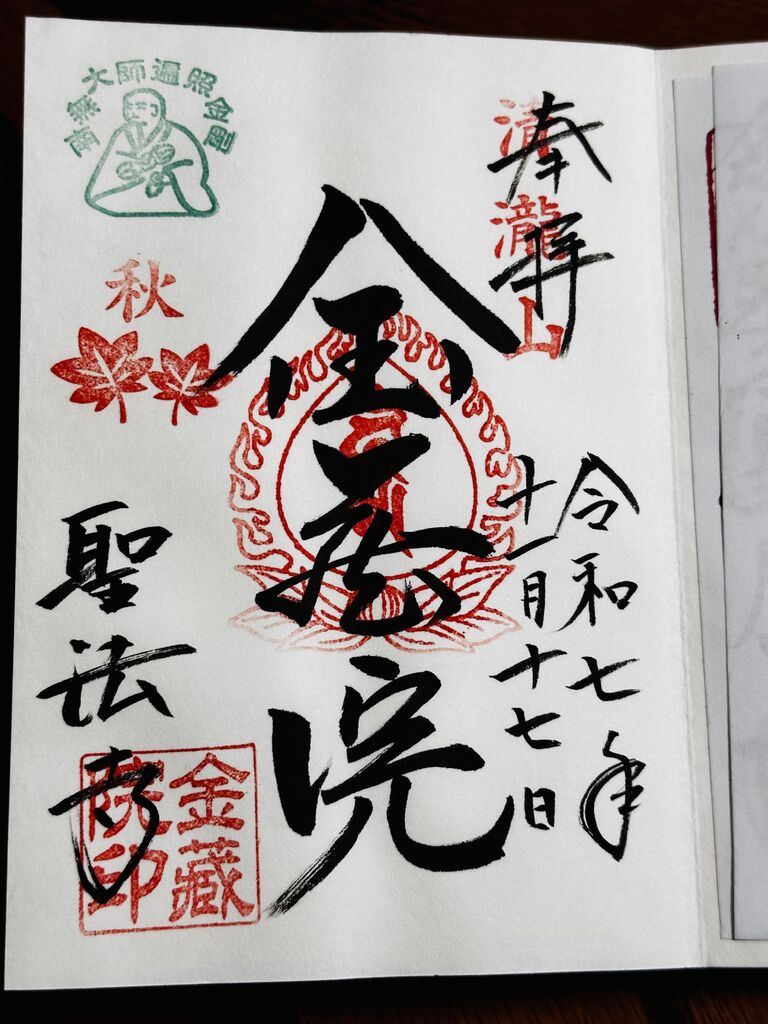 奉拝
清瀧山
令和七年
十一月十七日
金蔵院
南無大師遍照金剛
秋
聖法寺
金藏
院印